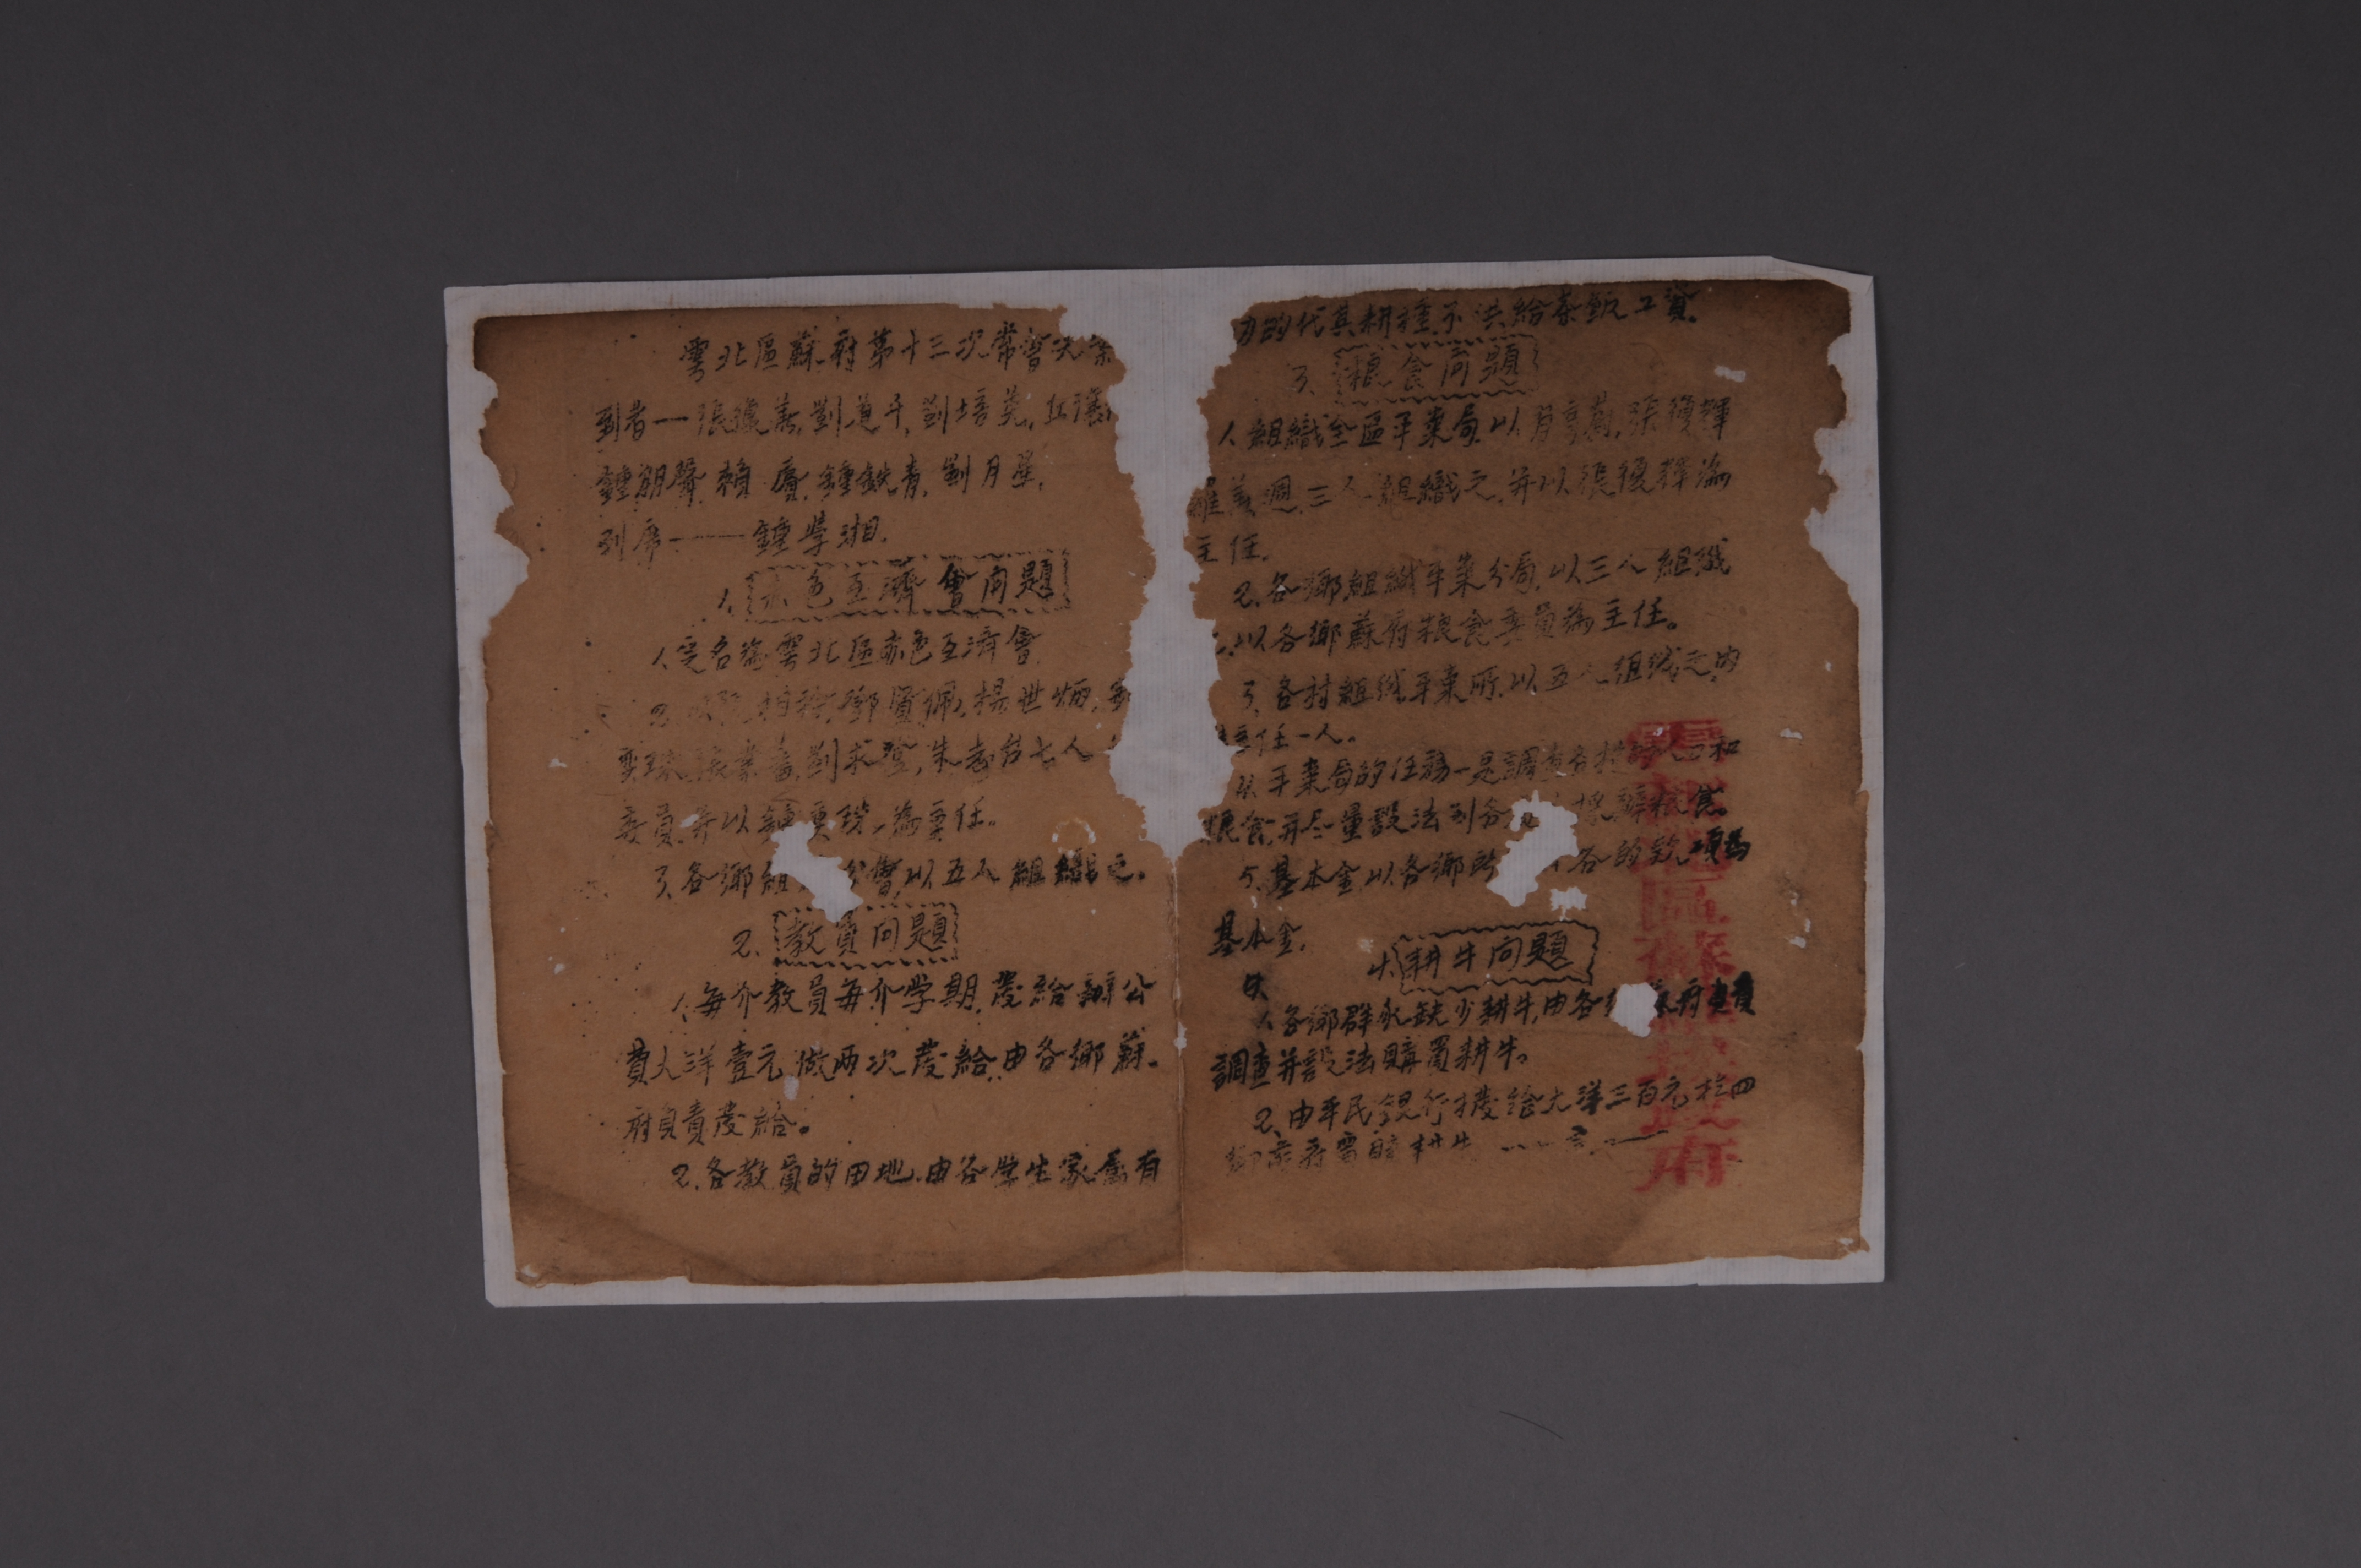 雲北區蘇府第十三次常會決案
到者——張 善,劉道千,劉培芫,
鍾朝聲,賴賡,鍾鉄青,劉月星,
列席——鍾学湘.
1.赤色互濟會问題
1.定名為雲北區赤色互濟會
2.以 鄧賓佩,楊世炳,
張 劉求澄,朱 台七人
委員,并以鍾 為主任。
3.各鄉組 分會,以五人組織之。
2.教員问題
1.每个教員每个学期,發給辦公
費大洋壹元,做两次發給,由各鄉蘇
府負責發給。
2.各教員的田地.由各学生家属有
力的代其耕種,不供給茶飯工資.
3.粮食问題
1.組織全區平粜局,以 張復輝
羅 三人組織之,并以張復輝為
主任.
2.各鄉組織平粜分局,以三人組織
之.以各鄉蘇府粮食委員為主任。
3.各村組織平粜所,以五人組织之,内
主任一人。
4.平粜局的任務一是調查各村的人口和
粮食,并尽量設法到各 採辦粮食。
5.基本金,以各鄉 的欵項為
基本金.
4.耕牛问題
1.各鄉群众缺少耕牛,由各 蘇府負責
調查并設法購買耕牛。
2.由平民銀行撥給大洋三百元於四
鄉蘇府 耕牛
區蘇 政府